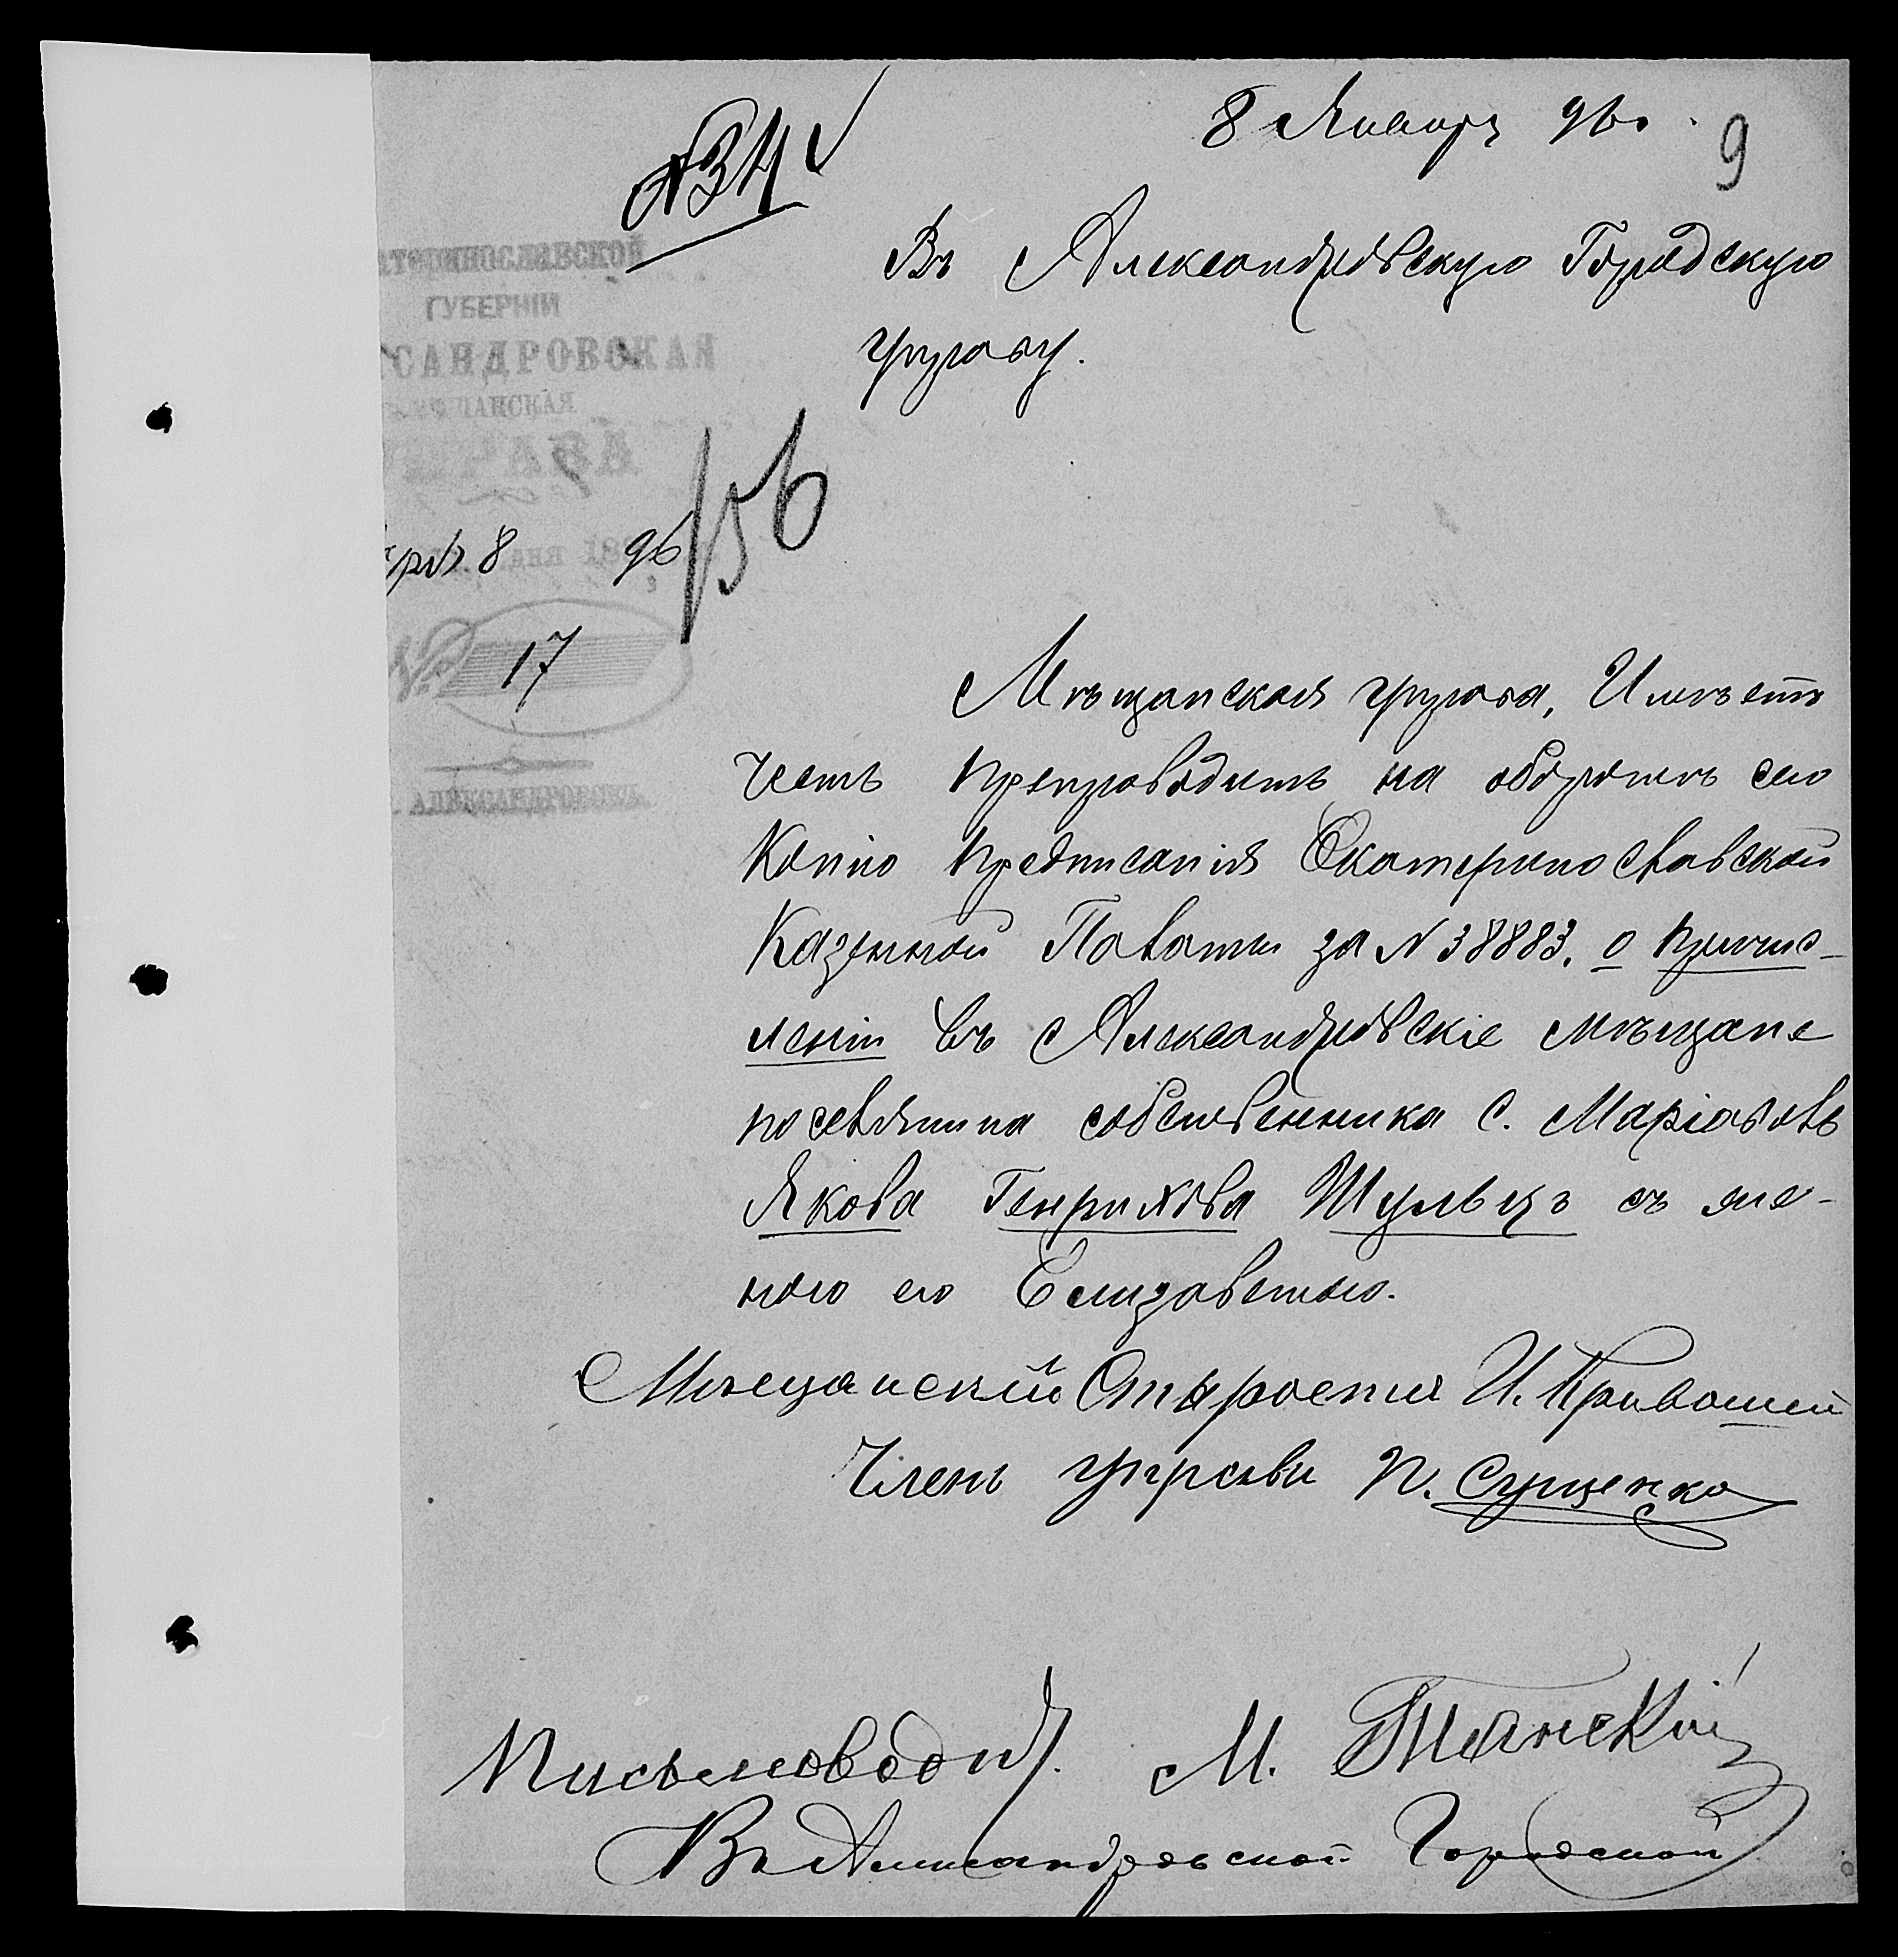 8 Январ 96 г.
9
№ 34
Въ Александровскую Городскую
управу.
АТЕРИНОСЛАВСКОЙ
ГУБЕРНІИ
САНДРОВСКАЯ
ЩАНСКАЯ
УПРАВА
8 дня 96
156
№ 17
Г. АЛЕКСАНДРОВСКЪ.
Мѣщанская управа, Имѣетъ
честь препроводить на оборотѣ сего
Копію предписанія Екатеринославской
Казенной Палаты за N 38883, о причис-
леніи въ Александровскіе мѣщане
поселянина собственника с.
Якова Генрихова Шульцъ съ же-
ною его Елизаветою.
Мѣщанскій Староста И. Кривошей
Членъ управы П. Сущенко
Письмовод М.
Въ Александровской Городской